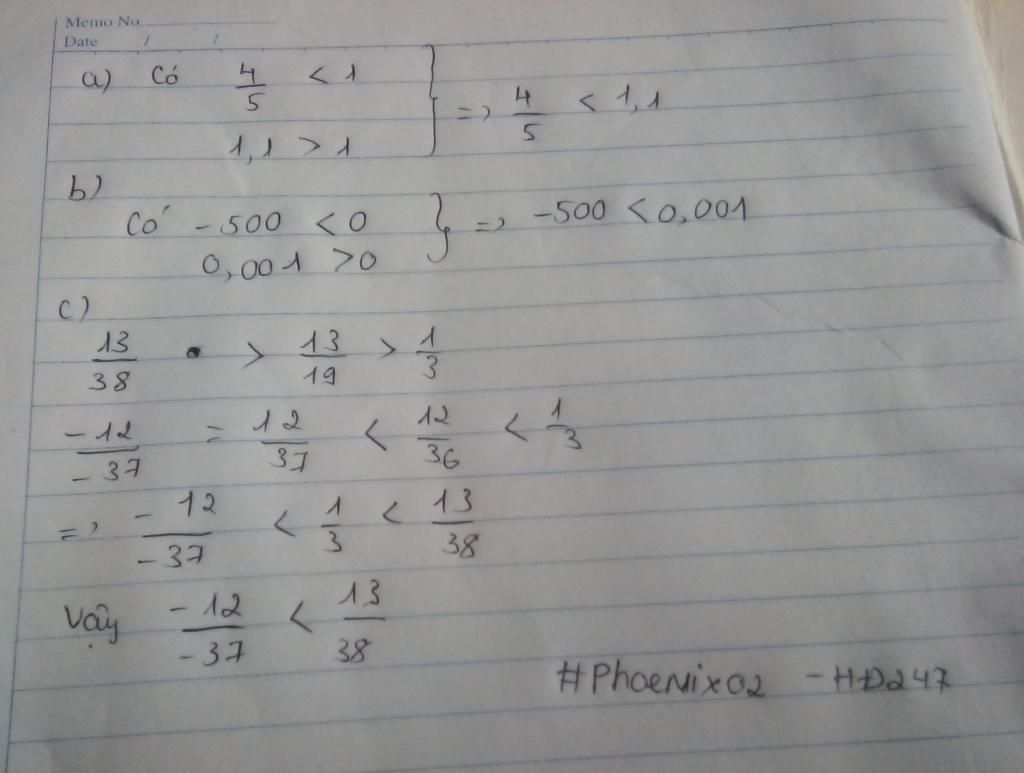 Memo No.
Date / /
a) Có 4/5 < 1
1,1 > 1
} => 4/5 < 1,1
b)
Có -500 < 0
0,001 > 0
} => -500 < 0,001
c)
13/38 > 13/19 > 1/3
-12/-37 = 12/37 < 12/36 < 1/3
=> -12/-37 < 1/3 < 13/38
Vậy -12/-37 < 13/38
#Phoenix02 - HĐ247